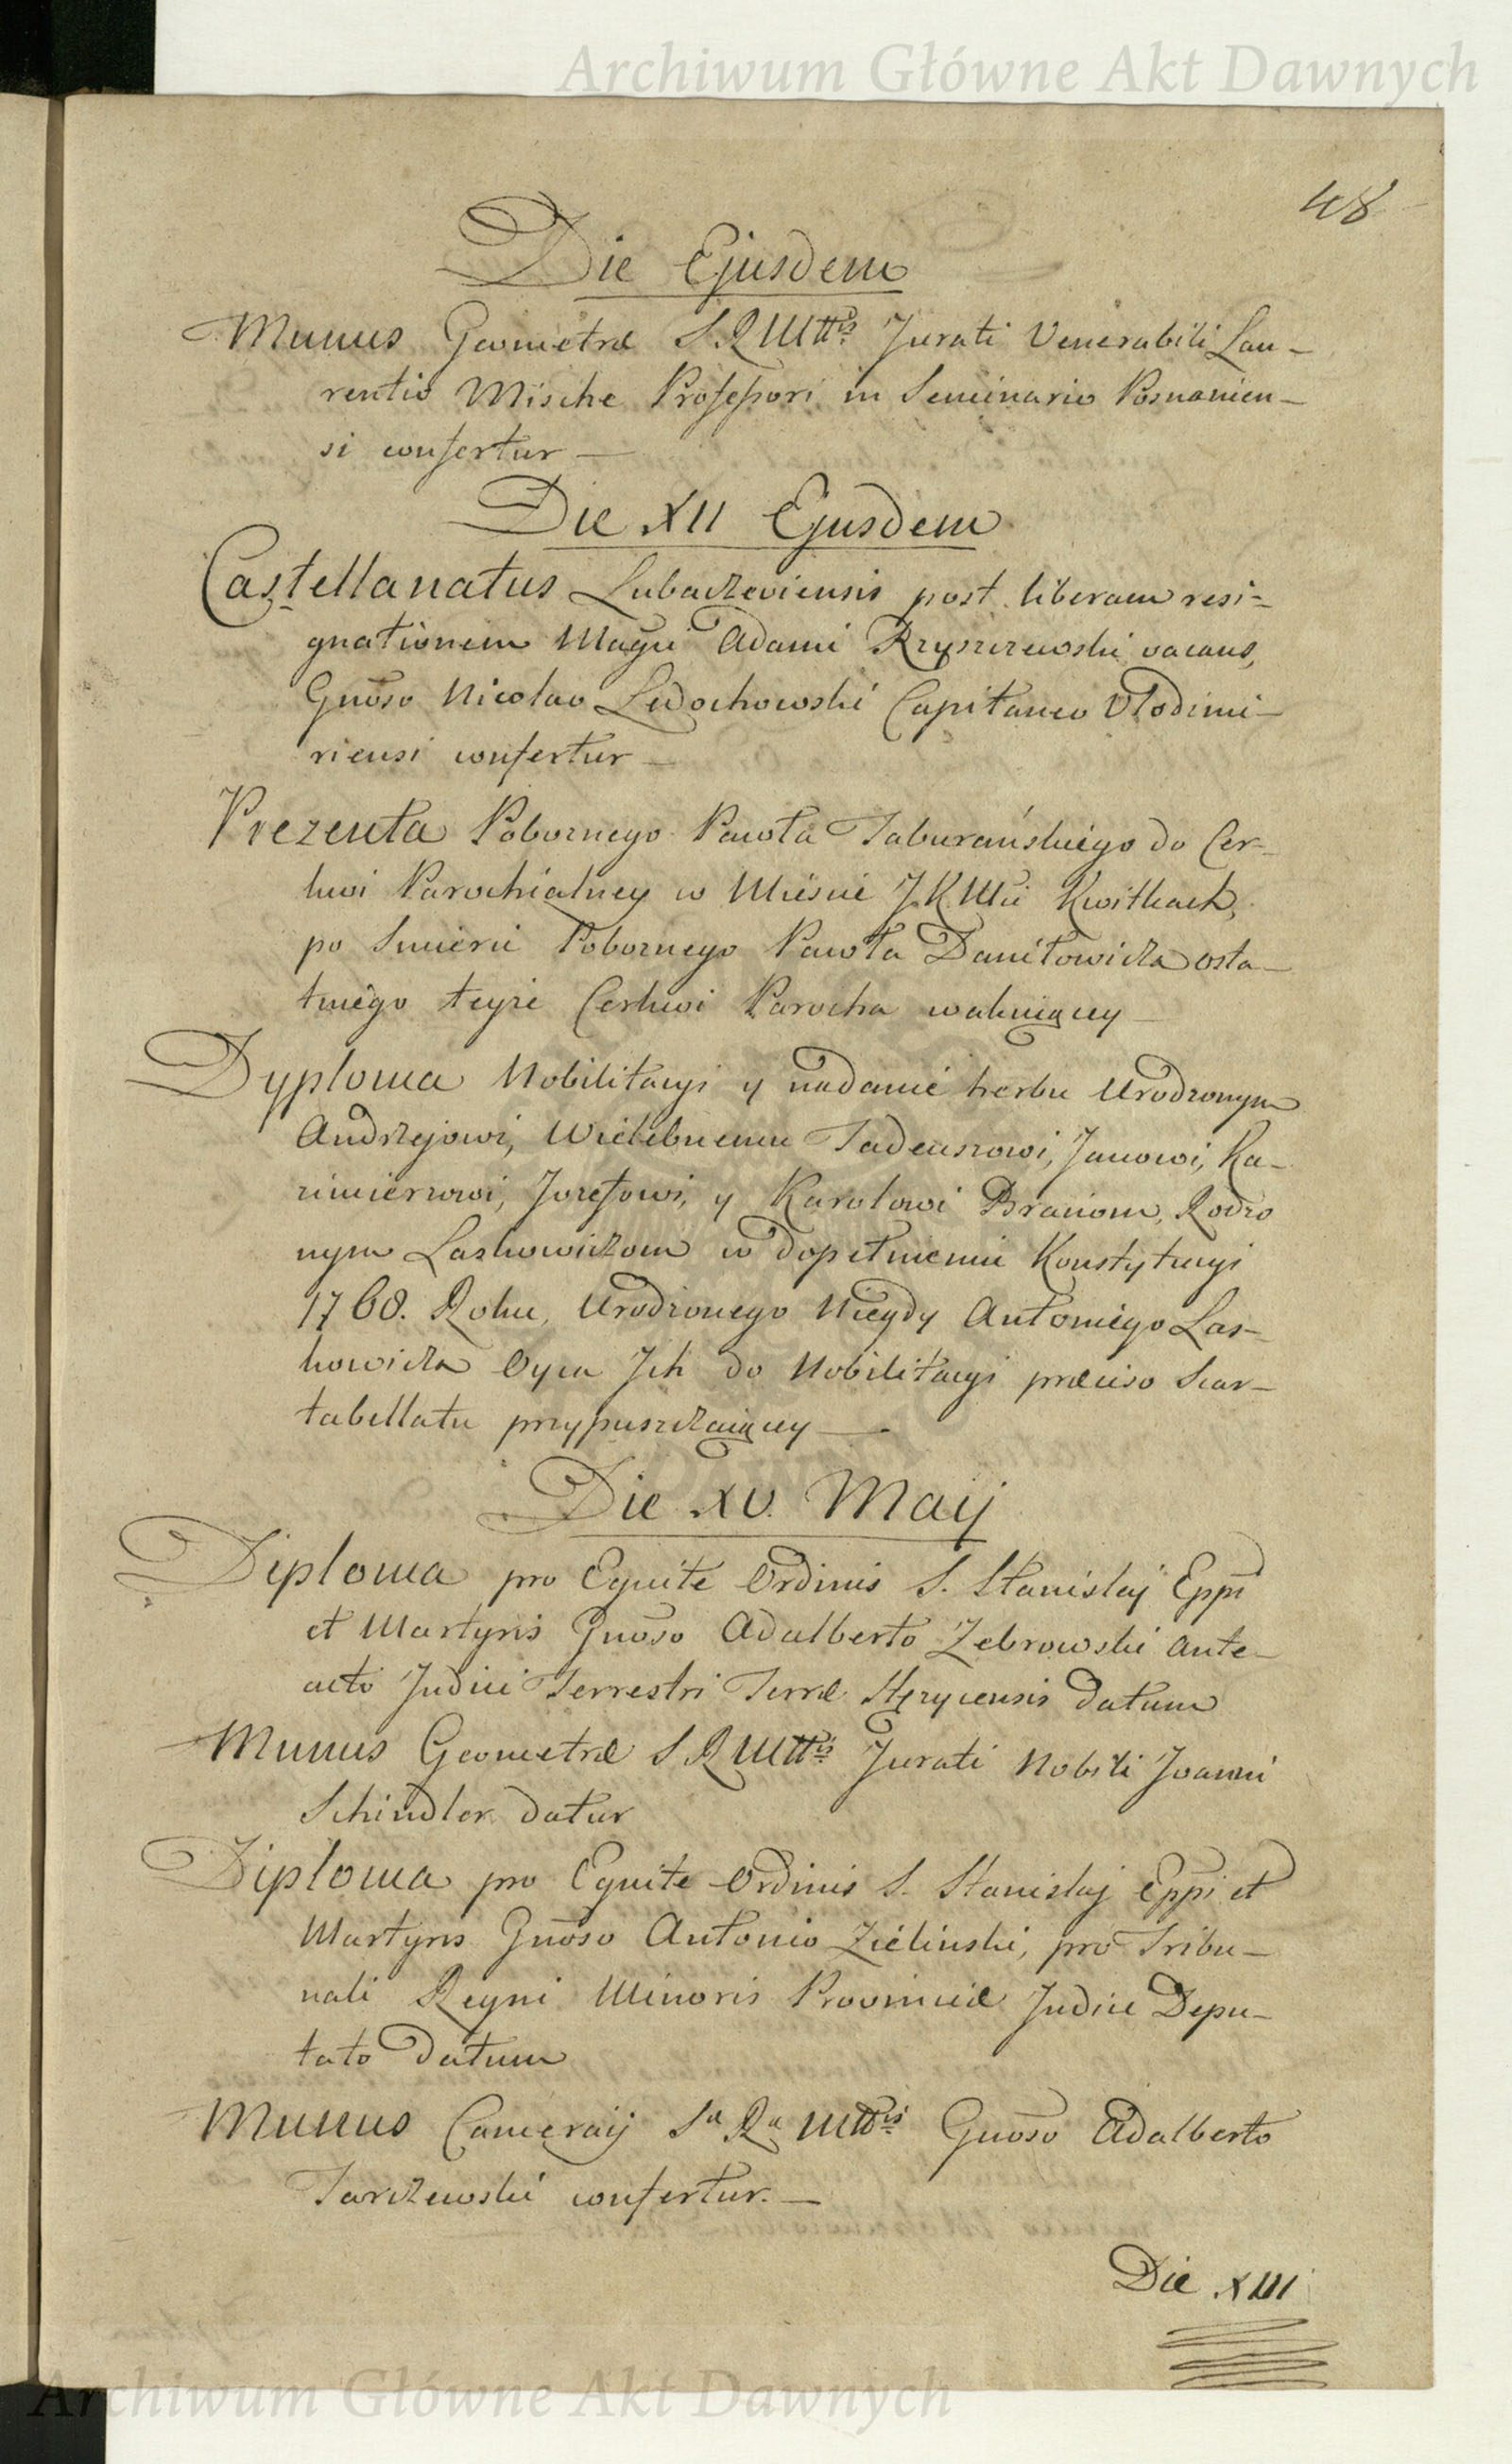 Archiwum Główne Akt Dawnych
48
Die Ejusdem
Munus Geometræ S. R. Mttis Jurati Venerabili Lau-
rentio Mische Professori in Seminario Posnanien-
si confertur —
Die XII Ejusdem
Castellanatus Lubaczeviensis post liberam resi-
gnationem Magci Adami Rzyszczewski vacans,
Gnoso Nicolao Ledochowski Capitaneo Vlodimi-
riensi confertur —
Prezenta Pobożnego Pawła Taburańskiego do Cer-
kwi Parochialney w Mieście J.K.Mci Kwitkach,
po Smierci Pobożnego Pawła Daniłowicza osta-
tniego teyże Cerkwi Parocha wakuiącey —
Dyploma Nobilitacyi y nadanie herbu Urodzonym
Andrzejowi, Wielebnemu Tadeuszowi, Janowi, Ka-
zimierzowi, Jozefowi, y Karolowi Braciom Rodzo
nym Laskowiczom w dopełnieniu Konstytucyi
1768. Roku, Urodzonego Niegdy Antoniego Las-
kowicza Oyca Jch do Nobilitacyi præciso Scar-
tabellatu przypuszczaiącey —
Die XV. Maij
Diploma pro Equite Ordinis S. Stanislaj Eppi
et Martyris Gnoso Adalberto Zebrowski ante-
acto Judici Terrestri Terræ Stęzycensis datum
Munus Geometræ S R Mttis Jurati Nobili Joanni
Schindler datur
Diploma pro Equite Ordinis S. Stanislaj Eppi et
Martyris Gnoso Antonio Zielinski, pro Tribu-
nali Regni Minoris Provinciæ Judici Depu-
tato datum
Munus Camerarij Sa Ra Mttis Gnoso Adalberto
Tarczewski confertur. —
Die XIII
Archiwum Główne Akt Dawnych